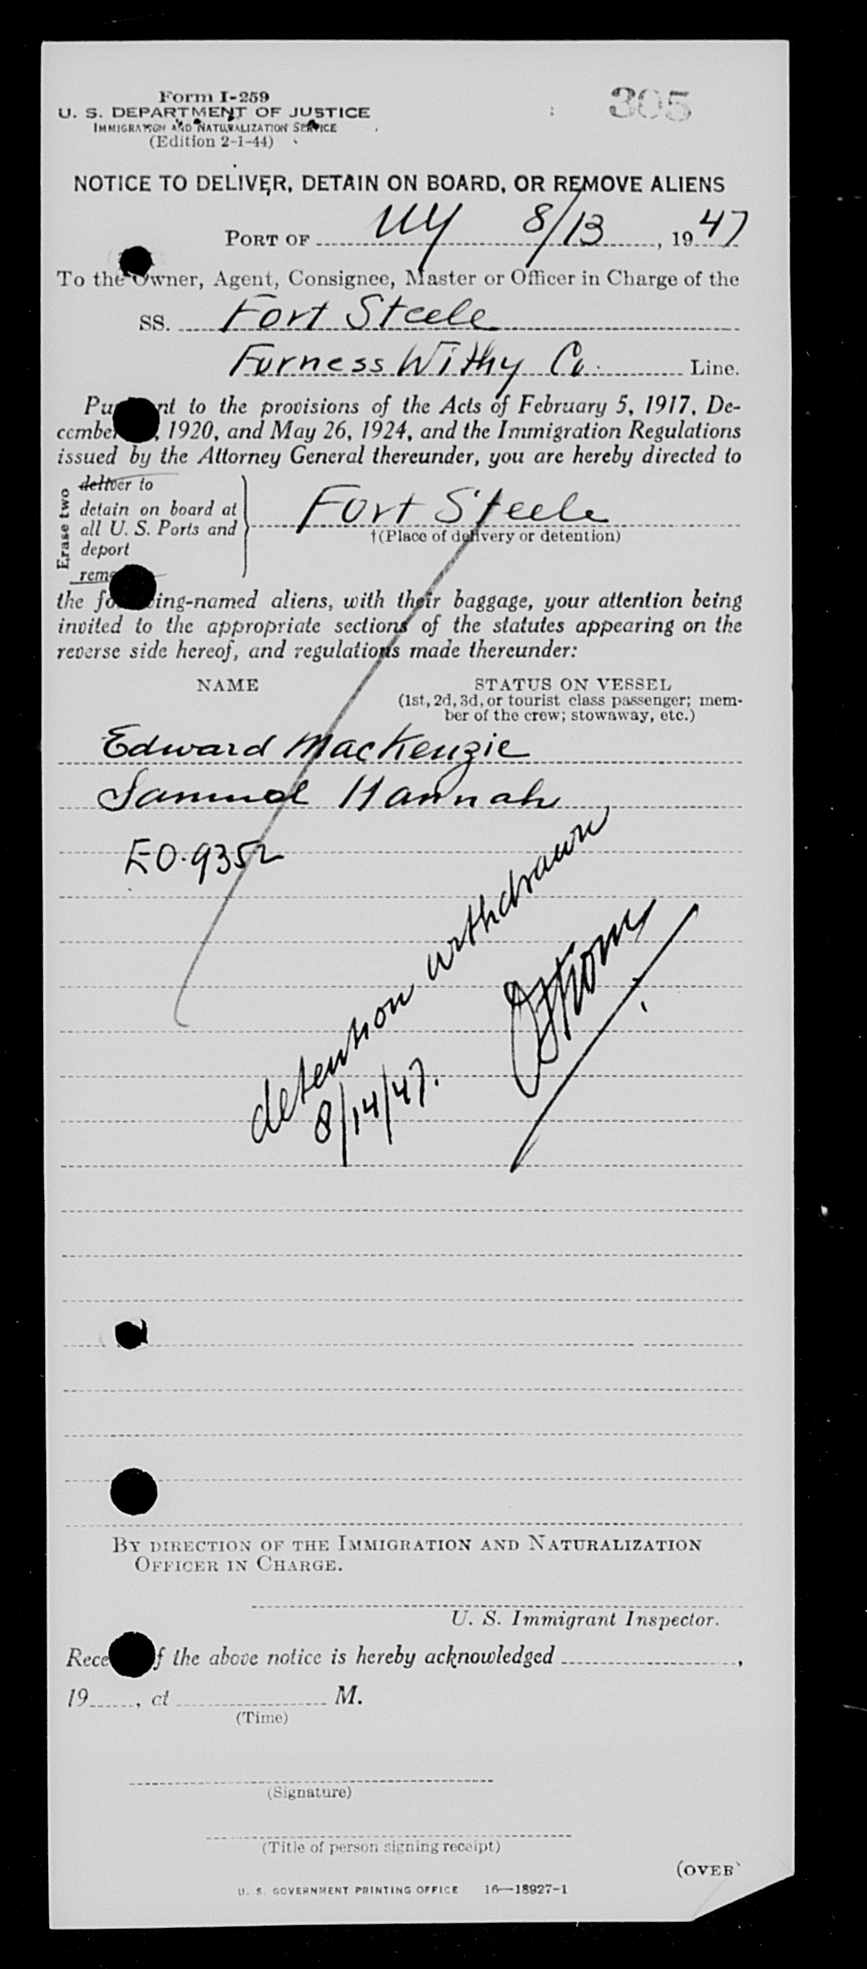 Form I-259
305
U. S. DEPARTMENT OF JUSTICE
IMMIGRATION AND NATURALIZATION SERVICE
(Edition 2-1-44)
NOTICE TO DELIVER, DETAIN ON BOARD, OR REMOVE ALIENS
PORT OF NY 8/13, 1947
To the Owner, Agent, Consignee, Master or Officer in Charge of the
SS. Fort Steele
Furness Withy Co. Line.
Pu nt to the provisions of the Acts of February 5, 1917, De-
cembe , 1920, and May 26, 1924, and the Immigration Regulations
issued by the Attorney General thereunder, you are hereby directed to
Erase two
deliver to
detain on board at
all U. S. Ports and
deport
rem
Fort Steele
†(Place of delivery or detention)
the fo ing-named aliens, with their baggage, your attention being
invited to the appropriate sections of the statutes appearing on the
reverse side hereof, and regulations made thereunder:
NAME STATUS ON VESSEL
(1st, 2d, 3d, or tourist class passenger; mem-
ber of the crew; stowaway, etc.)
Edward MacKenzie
Samuel Hannah
EO.9352
detention withdrawn
8/14/47.
BY DIRECTION OF THE IMMIGRATION AND NATURALIZATION
OFFICER IN CHARGE.
U. S. Immigrant Inspector.
Rece f the above notice is hereby acknowledged ,
19 , at M.
(Time)
(Signature)
(Title of person signing receipt)
(OVER)
U. S. GOVERNMENT PRINTING OFFICE 16—18927-1